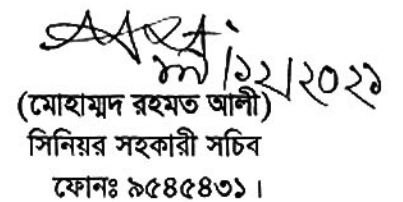 /১২/২০২১
(মোহাম্মদ রহমত আলী)
সিনিয়র সহকারী সচিব
ফোনঃ ৯৫৪৫৪৩১।